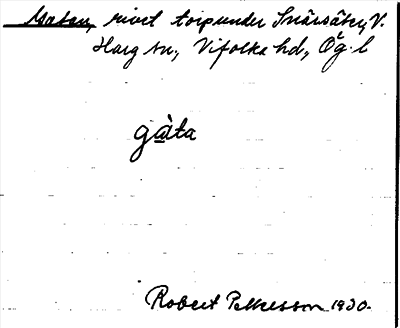 Gatan, rivet torp under Snårsäter, V.
Harg sn, Vifolka hd, Ög. l
gàta
Robert Petersson 1930.